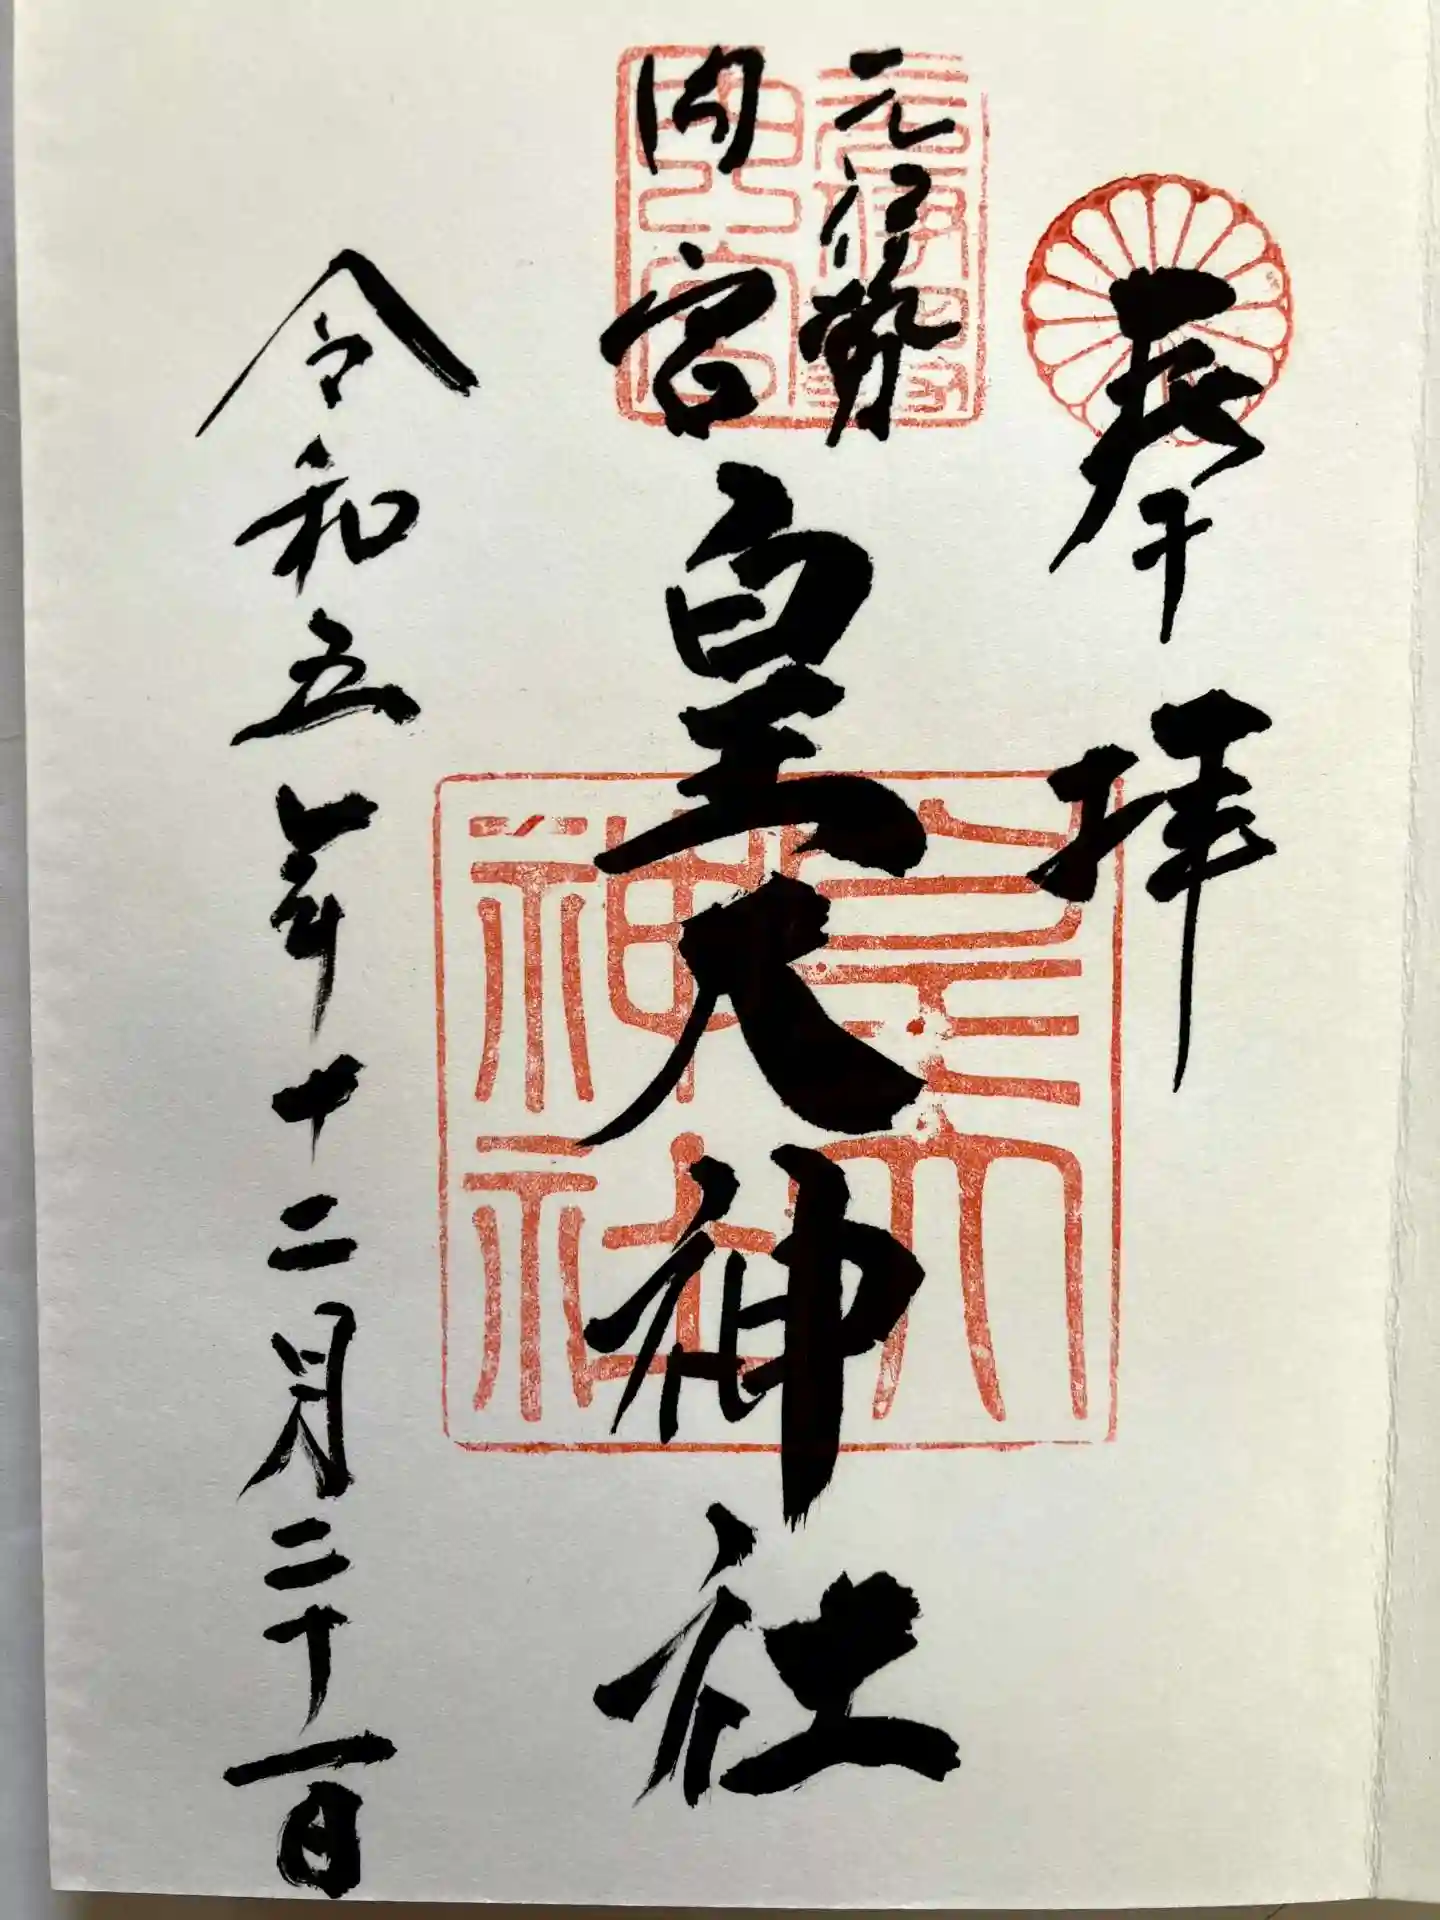 奉拝
元伊勢
内宮
皇大神社
令和五年十二月二十一日
元伊勢
内宮
皇大神社